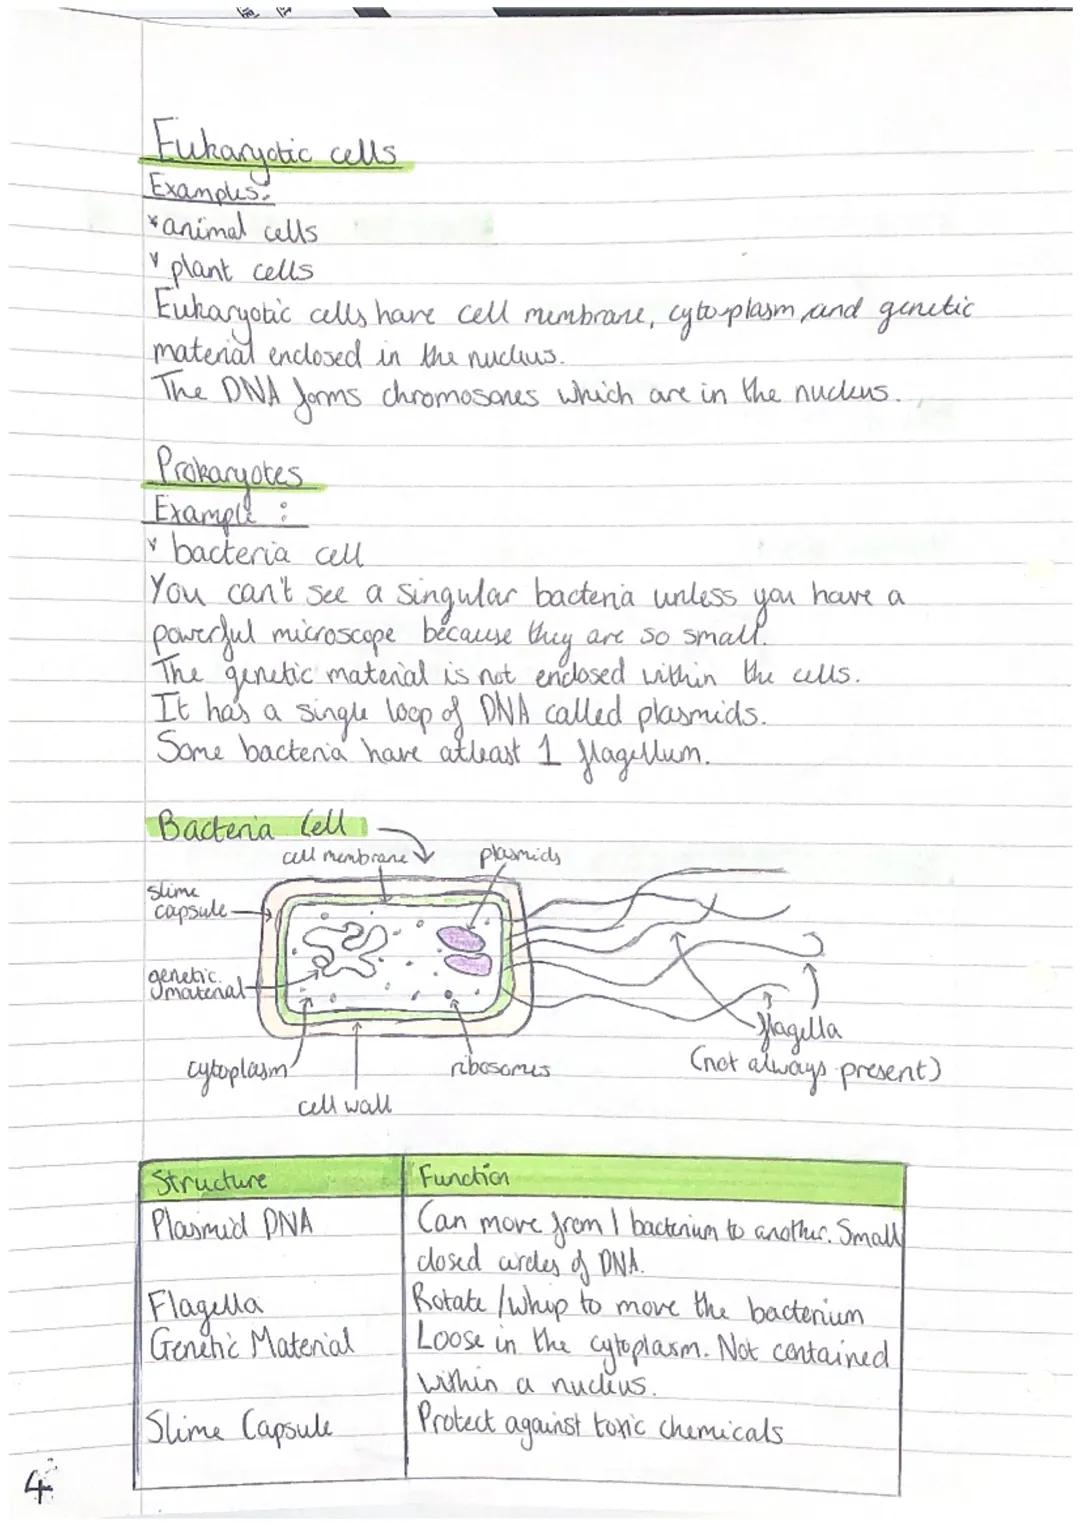 Eukaryotic cells
Examples:
*animal cells
* plant cells
Eukaryotic cells have cell membrane, cytoplasm and genetic
material enclosed in the nucleus.
The DNA forms chromosones which are in the nucleus.
Prokaryotes
Example :
* bacteria cell
You can't see a singular bacteria unless you have a
powerful microscope because they are so small.
The genetic material is not enclosed within the cells.
It has a single loop of DNA called plasmids.
Some bacteria have atleast 1 flagellum.
Bacteria Cell
cell membrane
plasmids
slime
capsule
genetic
material
cytoplasm
cell wall
ribosomes
flagella
(not always present)
Structure Function
Plasmid DNA Can move from 1 bacterium to another. Small
closed circles of DNA.
Flagella Rotate/whip to move the bacterium
Genetic Material Loose in the cytoplasm. Not contained
within a nucleus.
Slime Capsule Protect against toxic chemicals
4